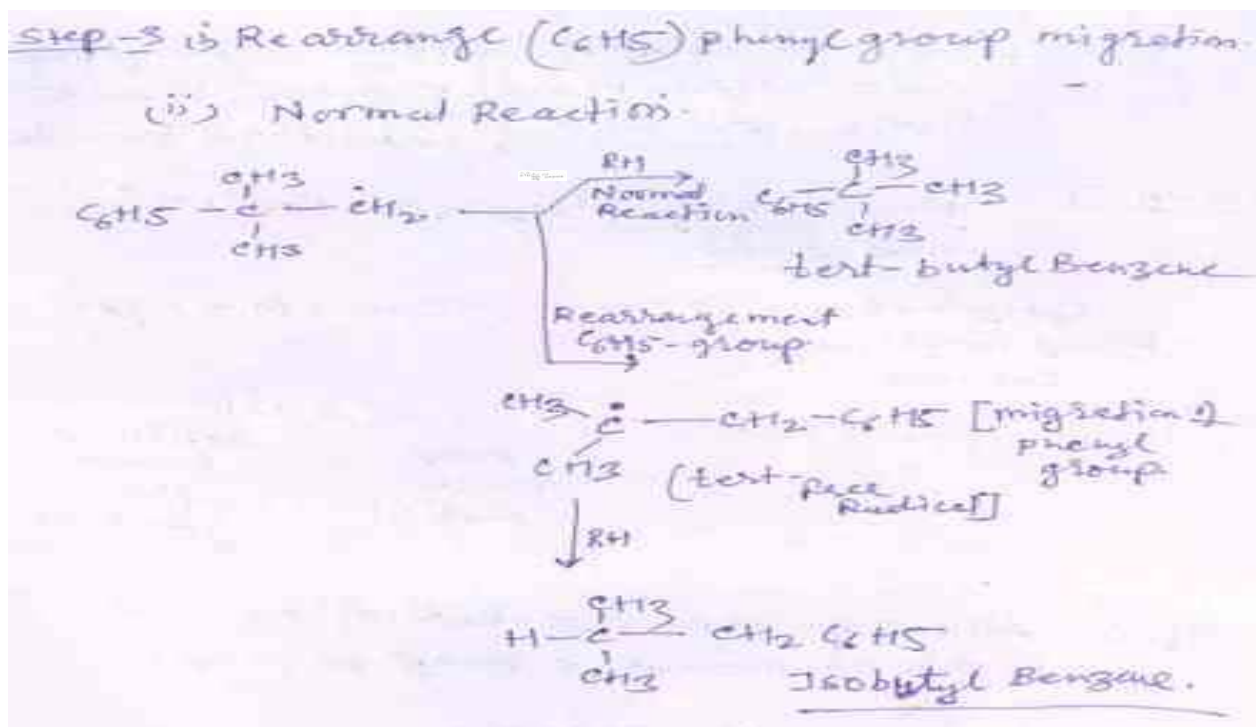 Step-3 is Rearrange (C6H5) phenyl group migration.
(ii) Normal Reaction.
CH3
C6H5 - C - ĊH2
CH3
RH
Normal Reaction
CH3
C6H5 - C - CH3
CH3
tert-butyl Benzene
Rearrangement
C6H5-group
CH3
Ċ - CH2-C6H5 [migration
phenyl
group
CH3
(tert- Radical]
RH
CH3
H-C - CH2 C6H5
CH3
Isobutyl Benzene.